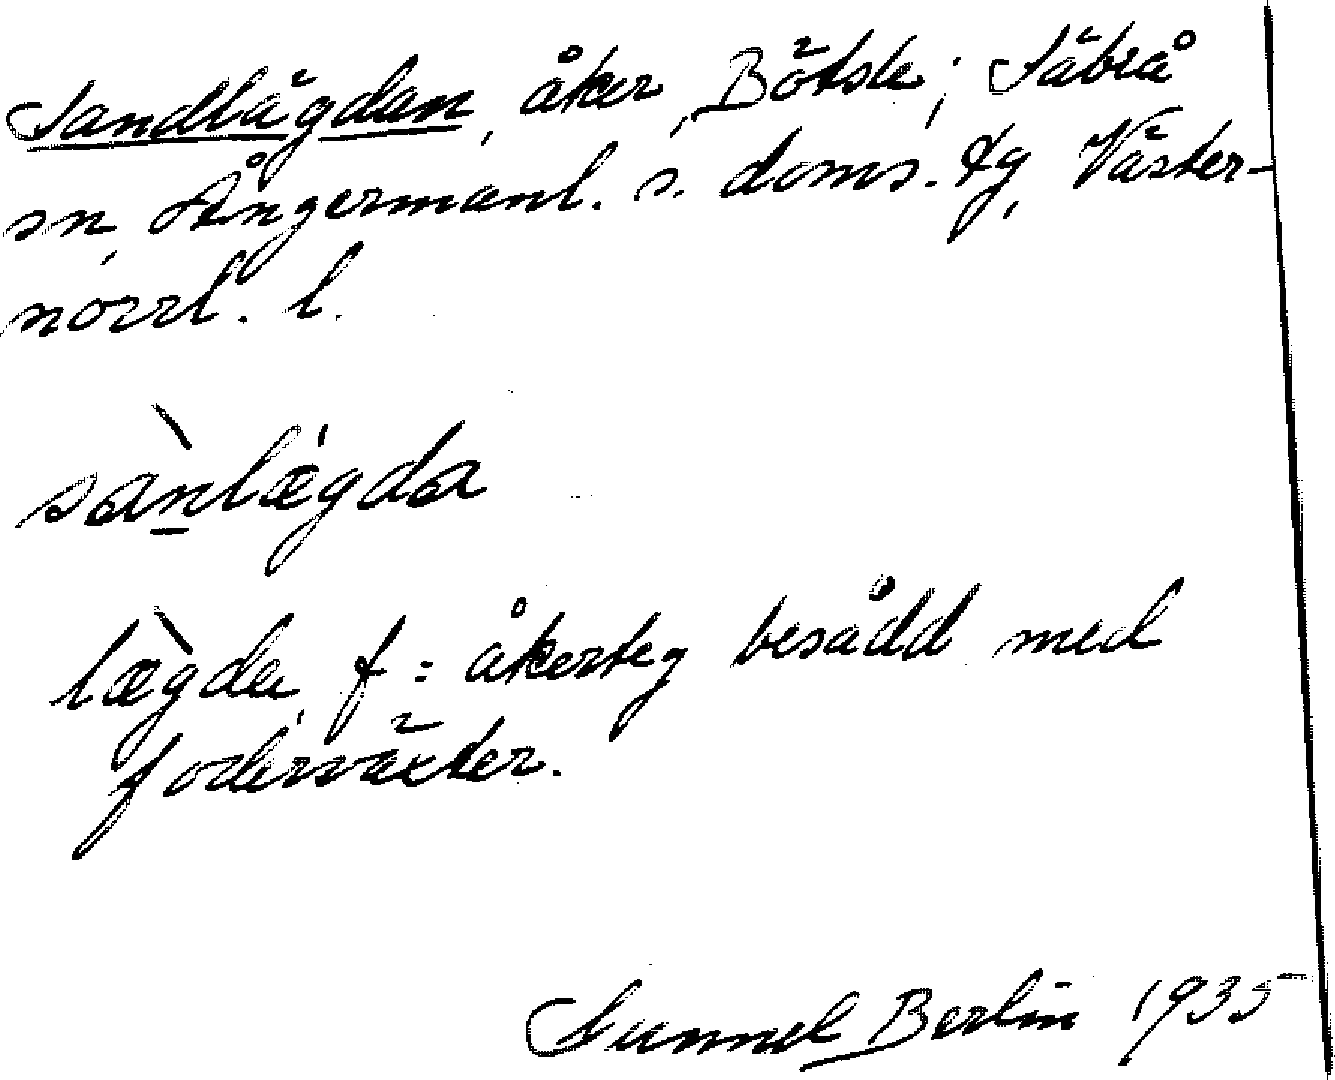 Sandlägdan, åker, Bölsle; Säbrå
sn, Ångermanl. s. doms. tg, Väster-
norrl. l.
sànlǽgda
lægda, f = åkerteg besådd med
foderväxter.
Gunnel Berlin 1935